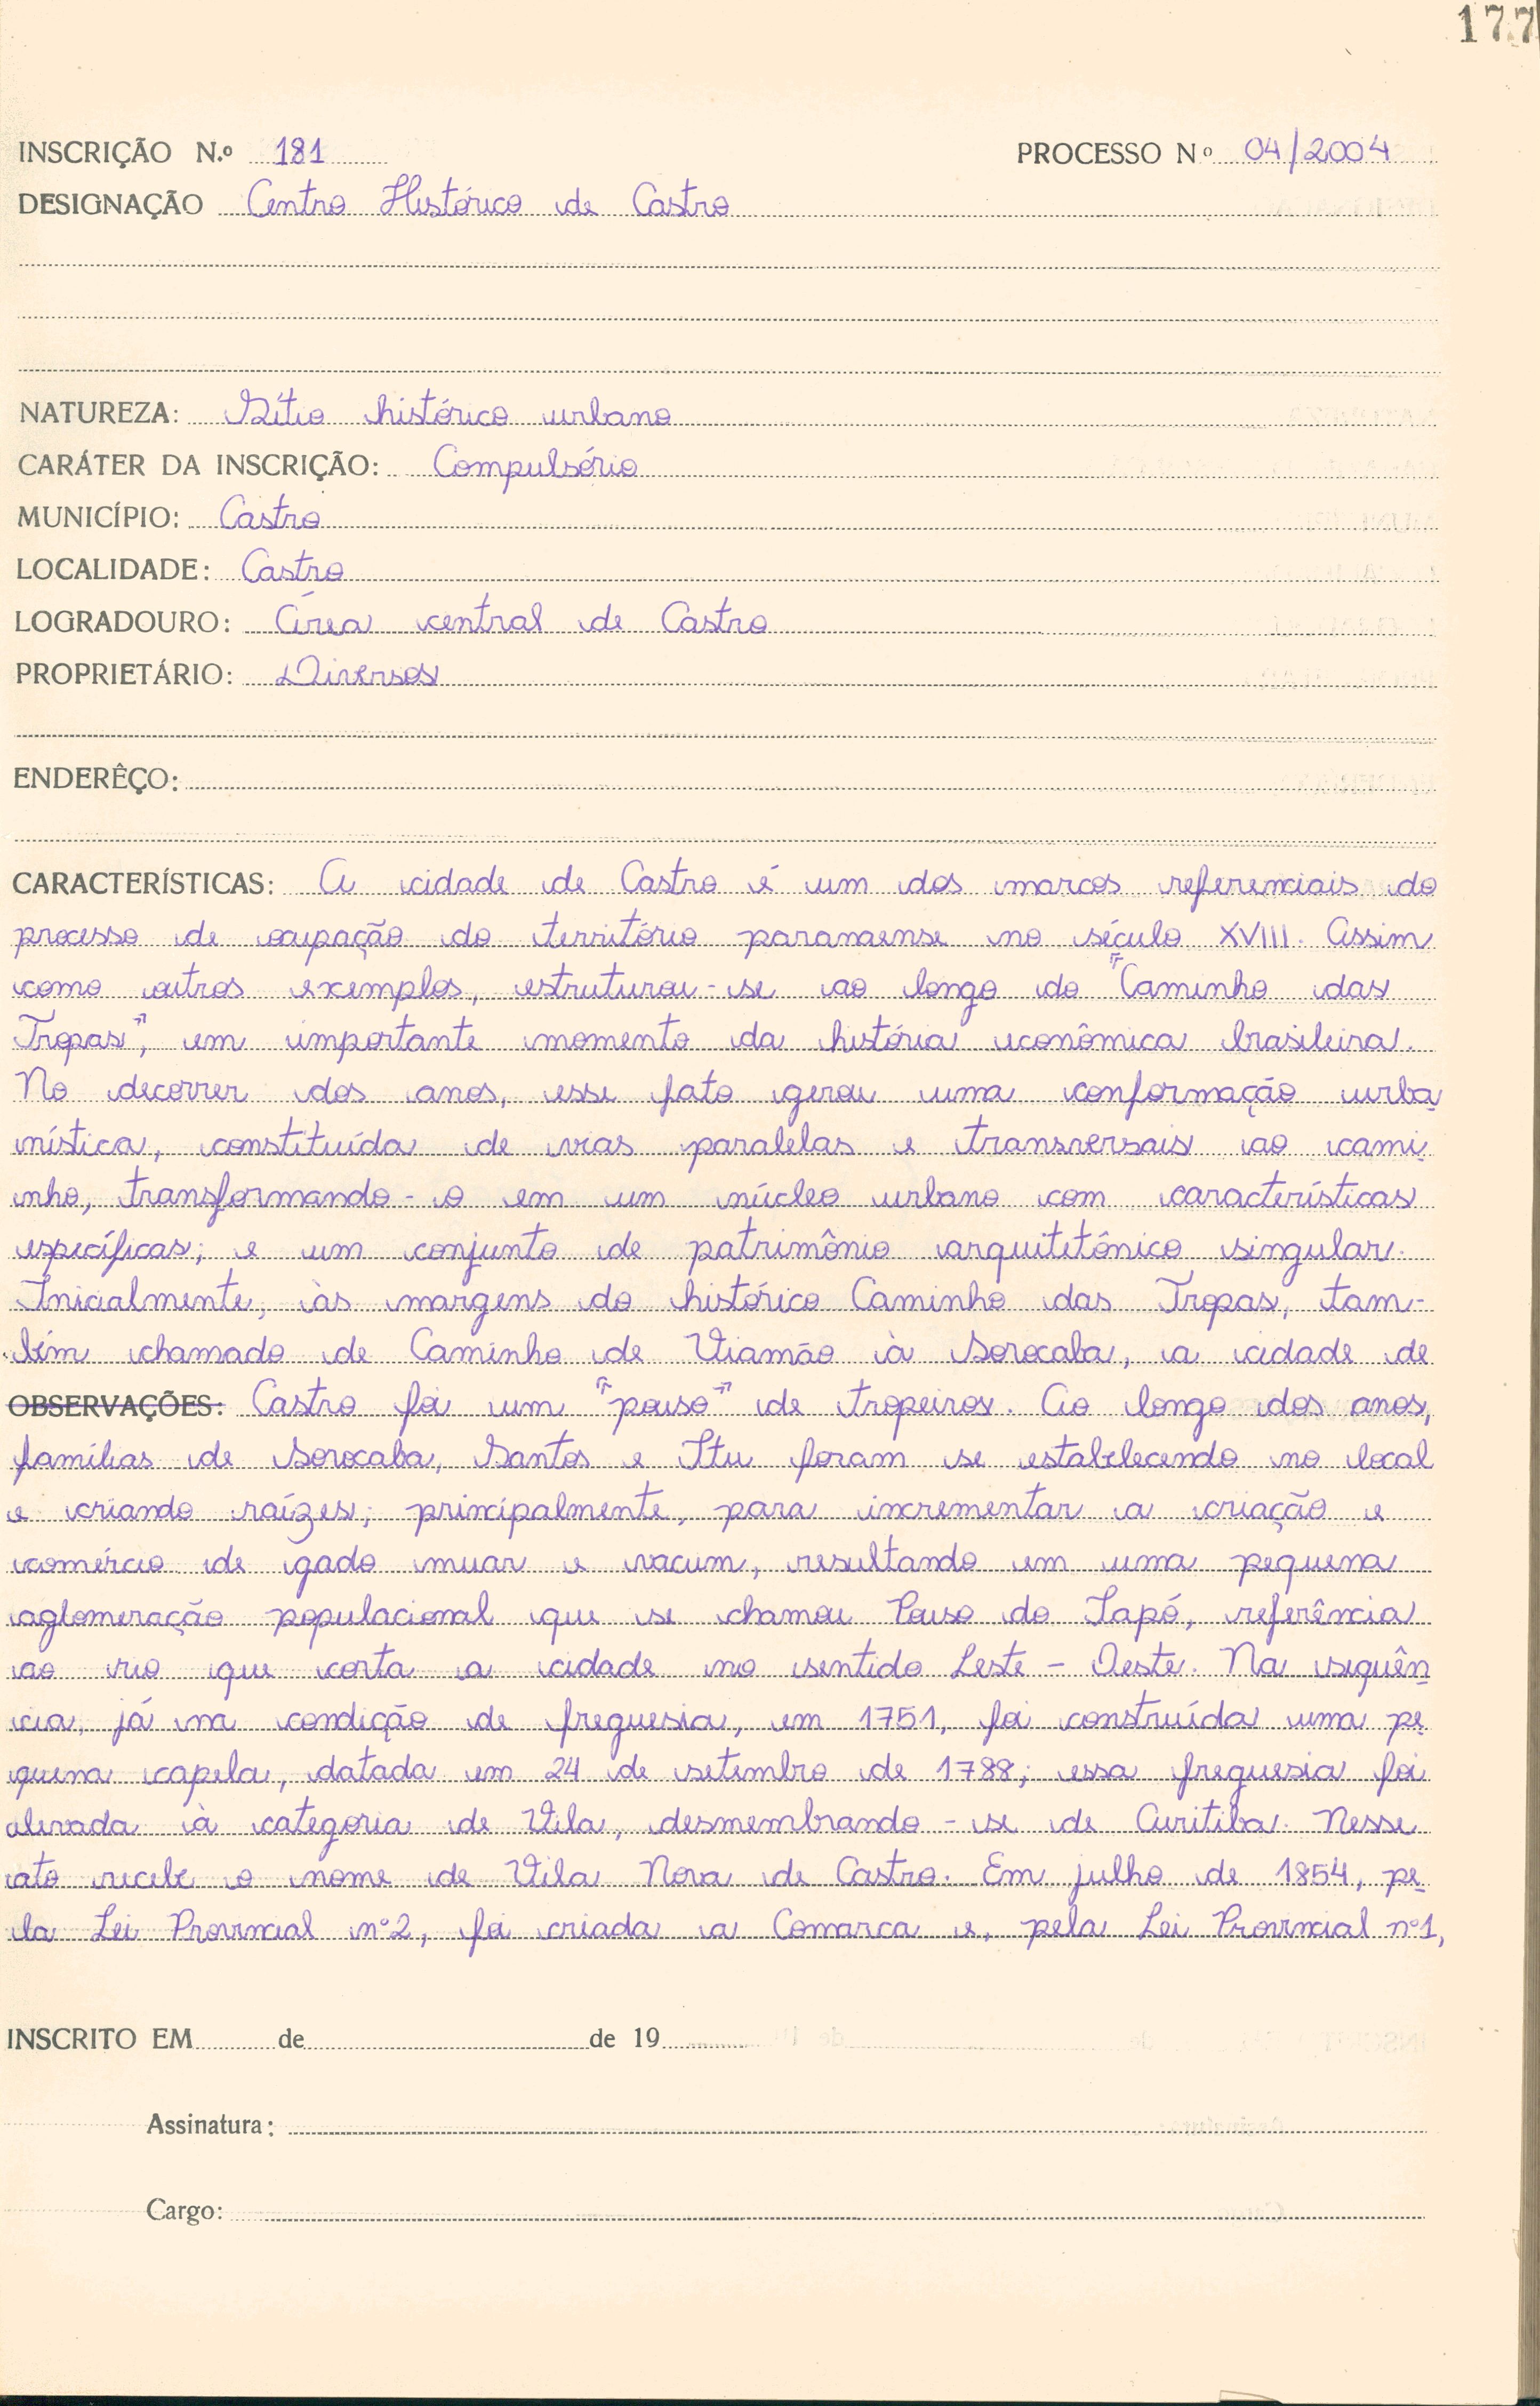 177
INSCRIÇÃO N.º 181 PROCESSO Nº 04/2004
DESIGNAÇÃO Centro Histórico de Castro
NATUREZA: Sítio histórico urbano
CARÁTER DA INSCRIÇÃO: Compulsório
MUNICÍPIO: Castro
LOCALIDADE: Castro
LOGRADOURO: Área central de Castro
PROPRIETÁRIO: Diversos
ENDERÊÇO:
CARACTERÍSTICAS: A cidade de Castro é um dos marcos referenciais do
processo de ocupação do território paranaense no século XVIII. Assim
como outros exemplos, estruturou-se ao longo do "Caminho das
Tropas", em importante momento da história econômica brasileira.
No decorrer dos anos, esse fato gerou uma conformação urba
nística, constituída de vias paralelas e transversais ao cami
nho, transformando-o em um núcleo urbano com características
específicas; e um conjunto de patrimônio arquitetônico singular.
Inicialmente, às margens do histórico Caminho das Tropas, tam-
bém chamado de Caminho de Viamão à Sorocaba, a cidade de
OBSERVAÇÕES: Castro foi um "pouso" de tropeiros. Ao longo dos anos,
famílias de Sorocaba, Santos e Itu foram se estabelecendo no local
e criando raízes; principalmente, para incrementar a criação e
comércio de gado muar e vacum, resultando em uma pequena
aglomeração populacional que se chamou Pouso do Iapó, referência
ao rio que corta a cidade no sentido Leste - Oeste. Na sequên
cia, já na condição de freguesia, em 1751, foi construída uma pe
quena capela, datada em 24 de setembro de 1788; essa freguesia foi
elevada à categoria de Vila, desmembrando-se de Curitiba. Nesse
ato recebe o nome de Vila Nova de Castro. Em julho de 1854, pe
la Lei Provincial nº2, foi criada a Comarca e, pela Lei Provincial nº1,
INSCRITO EM de de 19
Assinatura:
Cargo: